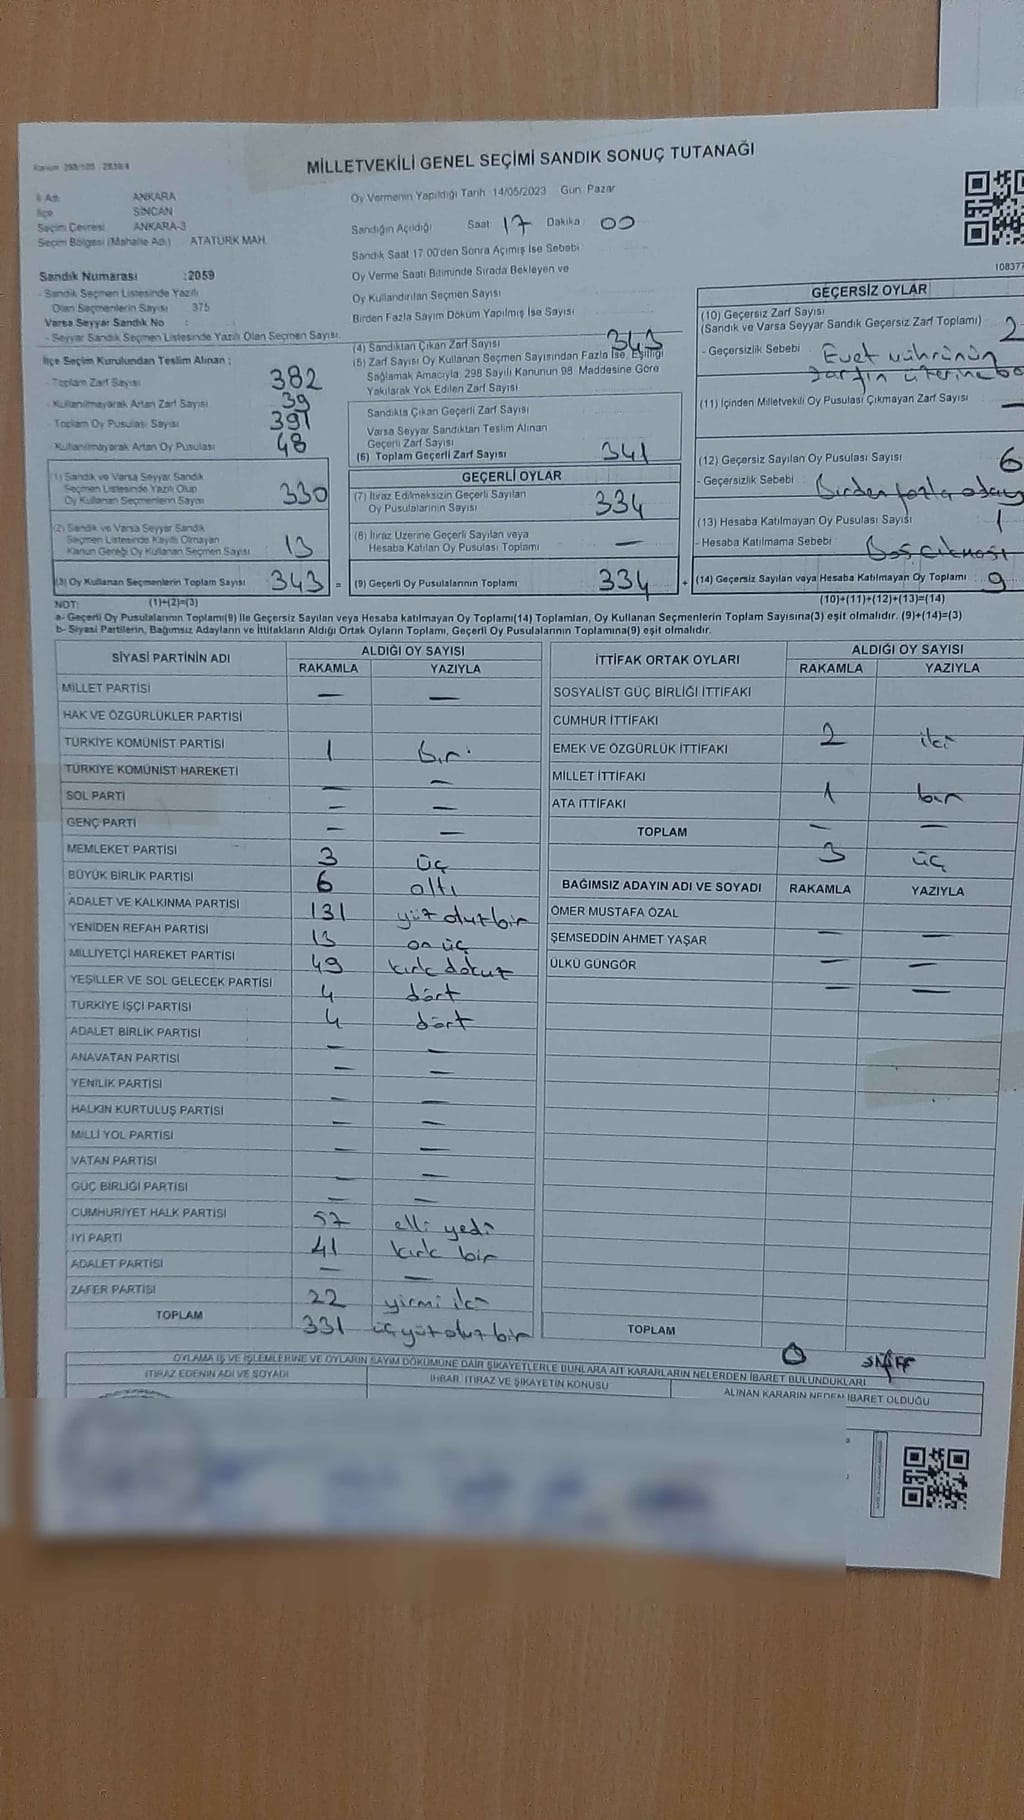 Kanun 298/105 - 2839/4
MİLLETVEKİLİ GENEL SEÇİMİ SANDIK SONUÇ TUTANAĞI
İl Adı ANKARA
İlçe SİNCAN
Seçim Çevresi ANKARA-3
Seçim Bölgesi (Mahalle Adı) ATATÜRK MAH.
Oy Vermenin Yapıldığı Tarih 14/05/2023 Gün Pazar
Sandığın Açıldığı Saat 17 Dakika 00
Sandık Saat 17.00'den Sonra Açılmış İse Sebebi
Oy Verme Saati Bitiminde Sırada Bekleyen ve
Oy Kullandırılan Seçmen Sayısı
Birden Fazla Sayım Döküm Yapılmış İse Sayısı
Sandık Numarası :2059
- Sandık Seçmen Listesinde Yazılı
Olan Seçmenlerin Sayısı 375
Varsa Seyyar Sandık No :
- Seyyar Sandık Seçmen Listesinde Yazılı Olan Seçmen Sayısı
İlçe Seçim Kurulundan Teslim Alınan ;
- Toplam Zarf Sayısı 382
- Kullanılmayarak Artan Zarf Sayısı 39
- Toplam Oy Pusulası Sayısı 391
- Kullanılmayarak Artan Oy Pusulası 48
1) Sandık ve Varsa Seyyar Sandık
Seçmen Listesinde Yazılı Olup
Oy Kullanan Seçmenlerin Sayısı 330
(2) Sandık ve Varsa Seyyar Sandık
Seçmen Listesinde Kayıtlı Olmayan
Kanun Gereği Oy Kullanan Seçmen Sayısı 13
(3) Oy Kullanan Seçmenlerin Toplam Sayısı 343 =
(4) Sandıktan Çıkan Zarf Sayısı 343
(5) Zarf Sayısı Oy Kullanan Seçmen Sayısından Fazla İse, Eşitliği
Sağlamak Amacıyla, 298 Sayılı Kanunun 98. Maddesine Göre
Yakılarak Yok Edilen Zarf Sayısı
Sandıkta Çıkan Geçerli Zarf Sayısı
Varsa Seyyar Sandıktan Teslim Alınan
Geçerli Zarf Sayısı
(6) Toplam Geçerli Zarf Sayısı 341
GEÇERLİ OYLAR
(7) İtiraz Edilmeksizin Geçerli Sayılan
Oy Pusulalarının Sayısı 334
(8) İtiraz Üzerine Geçerli Sayılan veya
Hesaba Katılan Oy Pusulası Toplamı —
(9) Geçerli Oy Pusulalarının Toplamı 334 +
108377
GEÇERSİZ OYLAR
(10) Geçersiz Zarf Sayısı
(Sandık ve Varsa Seyyar Sandık Geçersiz Zarf Toplamı) 2
- Geçersizlik Sebebi Evet mührünün
zarfın üzerine
(11) İçinden Milletvekili Oy Pusulası Çıkmayan Zarf Sayısı —
(12) Geçersiz Sayılan Oy Pusulası Sayısı 6
- Geçersizlik Sebebi Birden fazla aday
(13) Hesaba Katılmayan Oy Pusulası Sayısı 1
- Hesaba Katılmama Sebebi Boş çıkması
(14) Geçersiz Sayılan veya Hesaba Katılmayan Oy Toplamı 9
NOT: (1)+(2)=(3) (10)+(11)+(12)+(13)=(14)
a- Geçerli Oy Pusulalarının Toplamı(9) İle Geçersiz Sayılan veya Hesaba katılmayan Oy Toplamı(14) Toplamları, Oy Kullanan Seçmenlerin Toplam Sayısına(3) eşit olmalıdır. (9)+(14)=(3)
b- Siyasi Partilerin, Bağımsız Adayların ve İttifakların Aldığı Ortak Oyların Toplamı, Geçerli Oy Pusulalarının Toplamına(9) eşit olmalıdır.
SİYASİ PARTİNİN ADI ALDIĞI OY SAYISI
RAKAMLA YAZIYLA
MİLLET PARTİSİ — —
HAK VE ÖZGÜRLÜKLER PARTİSİ
TÜRKİYE KOMÜNİST PARTİSİ 1 bir
TÜRKİYE KOMÜNİST HAREKETİ — —
SOL PARTİ — —
GENÇ PARTİ — —
MEMLEKET PARTİSİ 3 üç
BÜYÜK BİRLİK PARTİSİ 6 altı
ADALET VE KALKINMA PARTİSİ 131 yüz otuz bir
YENİDEN REFAH PARTİSİ 13 on üç
MİLLİYETÇİ HAREKET PARTİSİ 49 kırk dokuz
YEŞİLLER VE SOL GELECEK PARTİSİ 4 dört
TÜRKİYE İŞÇİ PARTİSİ 4 dört
ADALET BİRLİK PARTİSİ — —
ANAVATAN PARTİSİ — —
YENİLİK PARTİSİ — —
HALKIN KURTULUŞ PARTİSİ — —
MİLLİ YOL PARTİSİ — —
VATAN PARTİSİ — —
GÜÇ BİRLİĞİ PARTİSİ — —
CUMHURİYET HALK PARTİSİ 57 elli yedi
İYİ PARTİ 41 kırk bir
ADALET PARTİSİ — —
ZAFER PARTİSİ 22 yirmi iki
TOPLAM 331 üç yüz otuz bir
İTTİFAK ORTAK OYLARI ALDIĞI OY SAYISI
RAKAMLA YAZIYLA
SOSYALİST GÜÇ BİRLİĞİ İTTİFAKI
CUMHUR İTTİFAKI 2 iki
EMEK VE ÖZGÜRLÜK İTTİFAKI
MİLLET İTTİFAKI 1 bir
ATA İTTİFAKI — —
TOPLAM 3 üç
BAĞIMSIZ ADAYIN ADI VE SOYADI RAKAMLA YAZIYLA
ÖMER MUSTAFA ÖZAL — —
ŞEMSEDDİN AHMET YAŞAR — —
ÜLKÜ GÜNGÖR — —
TOPLAM 0 sıfır
OYLAMA İŞ VE İŞLEMLERİNE VE OYLARIN SAYIM DÖKÜMÜNE DAİR ŞİKAYETLERLE BUNLARA AİT KARARLARIN NELERDEN İBARET BULUNDUKLARI
İTİRAZ EDENİN ADI VE SOYADI İHBAR, İTİRAZ VE ŞİKAYETİN KONUSU ALINAN KARARIN NEDEN İBARET OLDUĞU